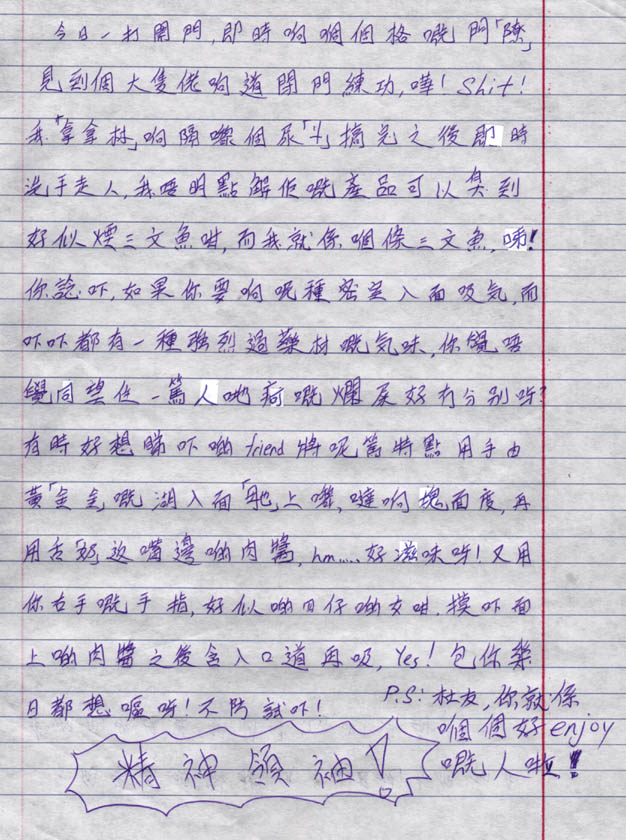 今日一打開門,即時响嗰個格嘅門「隙」
見到個大隻佬响道閉門練功,嘩! Shit!
我「拿拿林」响隔嚟個尿「斗」搞完之後即時
洗手走人,我唔明點解佢嘅產品可以臭到
好似煙三文魚咁,而我就係嗰條三文魚,唏!
你諗吓,如果你要响呢種密室入面吸気,而
吓吓都有一種強烈過藥材嘅気味,你覺唔
覺同望住一篤人哋疴嘅爛屎好冇分別呀?
有時好想睇吓啲friend將呢篤特點用手由
黃「金金」嘅湖入面 上嚟,噠响塊面度,再
用舌 返嘴邊啲肉醬, hm..... 好滋味呀! 又用
你右手嘅手指,好似啲囝仔啲女咁,摸吓面
上啲肉醬之後含入口道再吸, Yes! 包你幾
日都想嘔呀! 不防試吓!
精神領袖!
P.S: 社友,你就係
嗰個好enjoy
嘅人啦!!